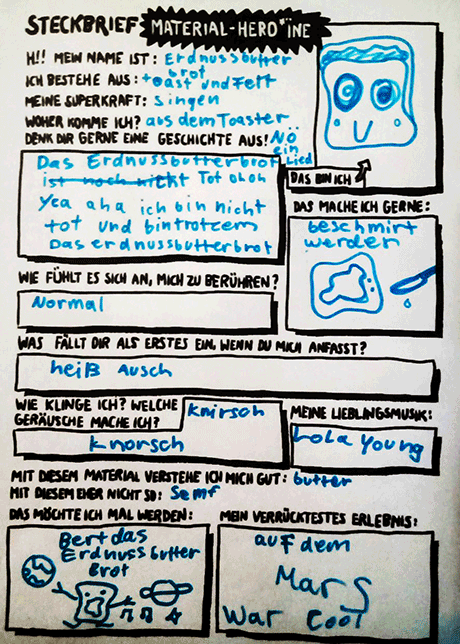 STECKBRIEF MATERIAL-HERO*ÏNE
H!! MEIN NAME IST: Erdnussbutter
brot
ICH BESTEHE AUS: toast und Fett
MEINE SUPERKRAFT: Singen
WOHER KOMME ICH? aus dem Toaster
DENK DIR GERNE EINE GESCHICHTE AUS! Nö
ein
Lied
Das Erdnussbutterbrot
ist noch nicht Tot ohoh
Yea aha ich bin nicht
tot und bin trotzem
Das erdnussbutterbrot
DAS BIN ICH
DAS MACHE ICH GERNE:
beschmirt
werden
WIE FÜHLT ES SICH AN, MICH ZU BERÜHREN?
Normal
WAS FÄLLT DIR ALS ERSTES EIN, WENN DU MICH ANFASST?
heiß Ausch
WIE KLINGE ICH? WELCHE
GERÄUSCHE MACHE ICH?
knirsch
knorsch
MEINE LIEBLINGSMUSIK:
Lola Young
MIT DIESEM MATERIAL VERSTEHE ICH MICH GUT: butter
MIT DIESEM EHER NICHT SO: Semf
DAS MÖCHTE ICH MAL WERDEN:
Bert das
Erdnuss butter
Brot
MEIN VERRÜCKTESTES ERLEBNIS:
auf dem
Mars
War cool